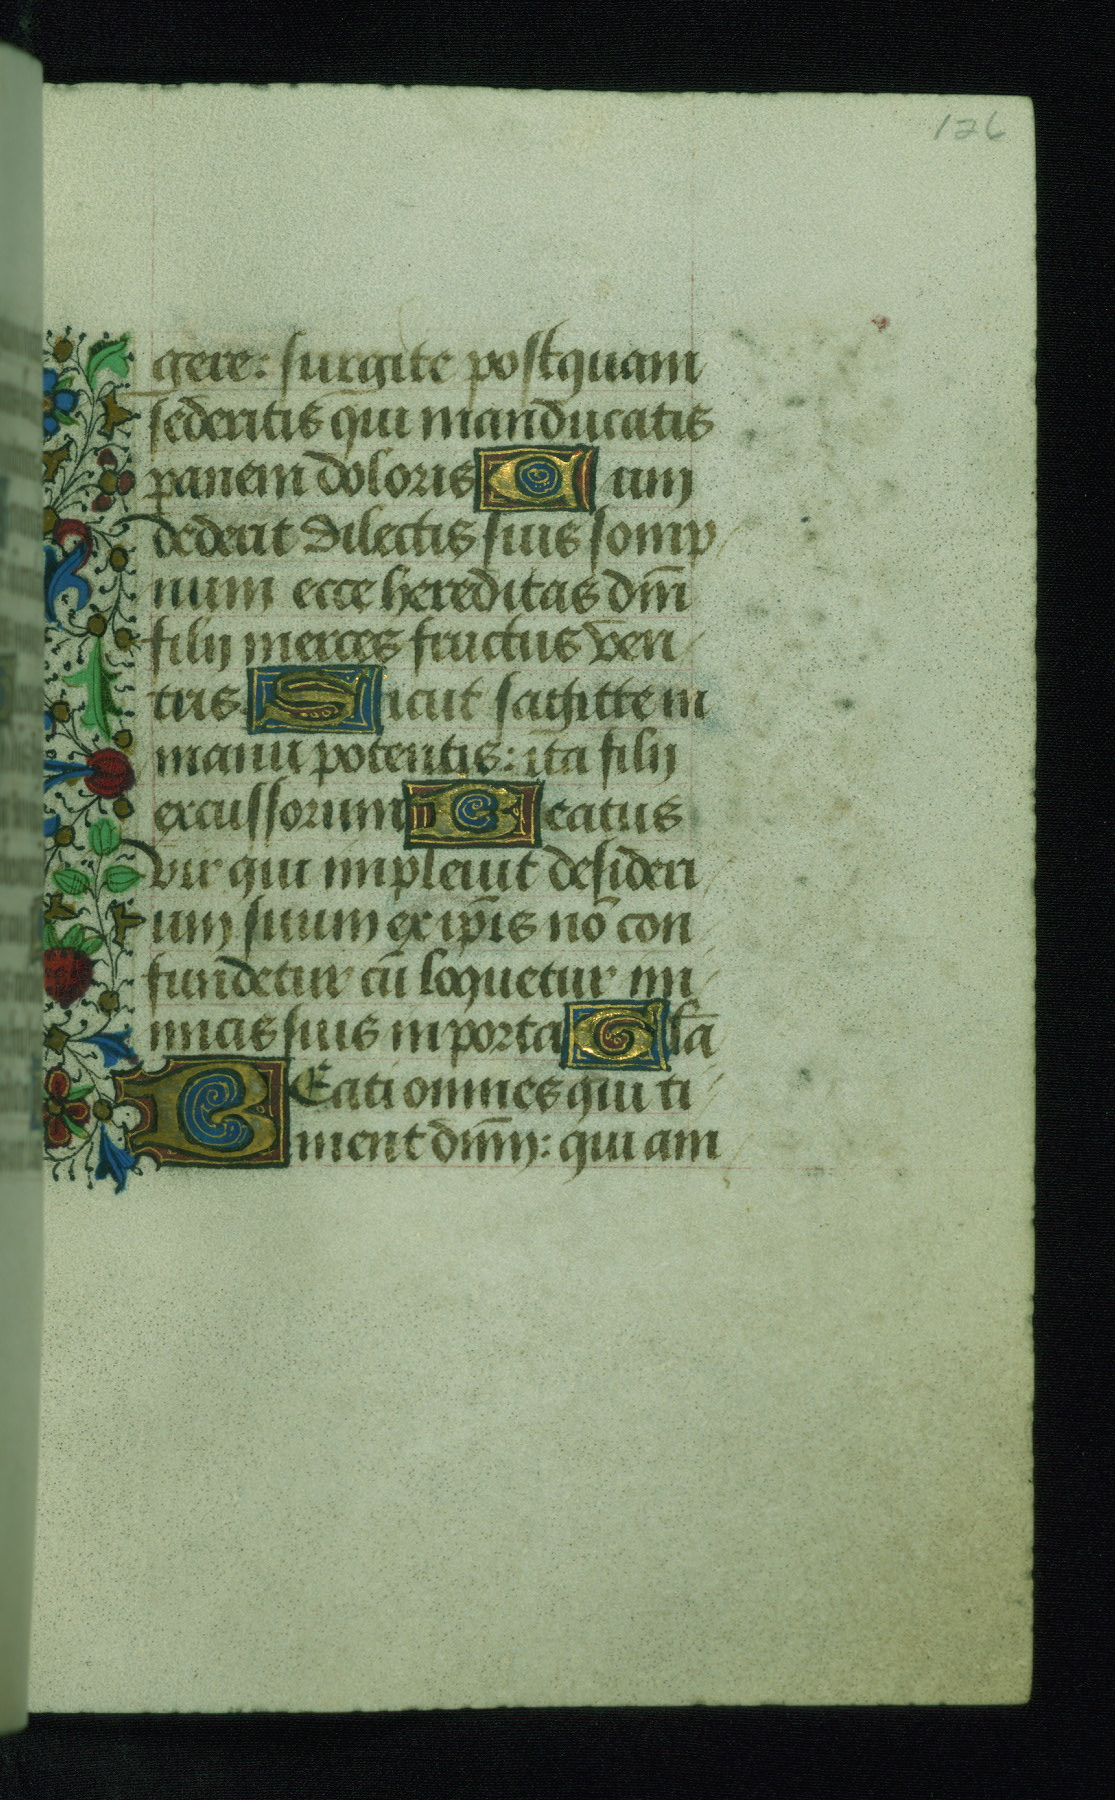 126
gere: surgite postquam
sederitis qui manducatis
panem doloris Cum
dederit dilectis suis somp
num ecce hereditas dnī
filij merces fructus ven
tris Sicut sagitte in
manu potentis: ita filij
excussorum Beatus
vir qui impleuit desideri
um suum ex ipīs nō con
fundetur cū loquetur ini
micis suis in porta Glā
BEati omnes qui ti
ment dnm̄: qui am